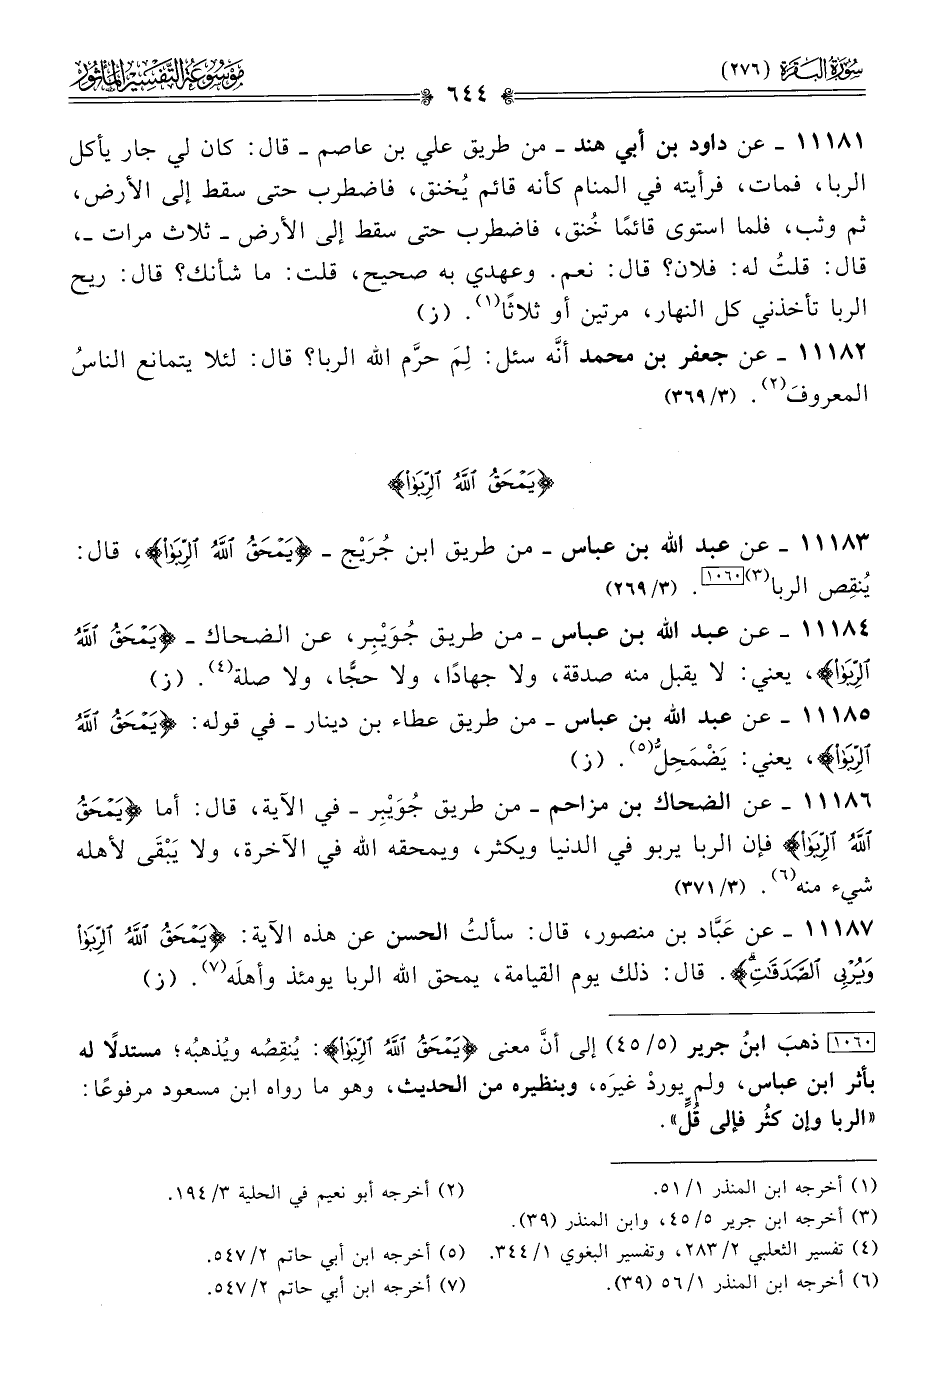 سُورَةُ البَقَرَةِ (٢٧٦)
٦٤٤
مَوْسُوعَةُ التَّفْسِيرِ المَأْثُور
١١١٨١ ـ عن داود بن أبي هند ـ من طريق علي بن عاصم ـ قال: كان لي جار يأكل
الربا، فمات، فرأيته في المنام كأنه قائم يُخنق، فاضطرب حتى سقط إلى الأرض،
ثم وثب، فلما استوى قائمًا خُنق، فاضطرب حتى سقط إلى الأرض ـ ثلاث مرات ـ،
قال: قلتُ له: فلان؟ قال: نعم. وعهدي به صحيح، قلت: ما شأنك؟ قال: ريح
الربا تأخذني كل النهار، مرتين أو ثلاثًا(١). (ز)
١١١٨٢ ـ عن جعفر بن محمد أنَّه سئل: لِمَ حرَّم الله الربا؟ قال: لئلا يتمانع الناسُ
المعروفَ(٢). (٣/٣٦٩)
﴿يَمْحَقُ ٱللَّهُ ٱلرِّبَوٰا۟﴾
١١١٨٣ ـ عن عبد الله بن عباس ـ من طريق ابن جُرَيْج ـ ﴿يَمْحَقُ ٱللَّهُ ٱلرِّبَوٰا۟﴾، قال:
يُنقِص الربا(٣)[١٠٦٠]. (٣/٢٦٩)
١١١٨٤ ـ عن عبد الله بن عباس ـ من طريق جُوَيْبِر، عن الضحاك ـ ﴿يَمْحَقُ ٱللَّهُ
ٱلرِّبَوٰا۟﴾، يعني: لا يقبل منه صدقة، ولا جهادًا، ولا حجًّا، ولا صلة(٤). (ز)
١١١٨٥ ـ عن عبد الله بن عباس ـ من طريق عطاء بن دينار ـ في قوله: ﴿يَمْحَقُ ٱللَّهُ
ٱلرِّبَوٰا۟﴾، يعني: يَضْمَحِلُّ(٥). (ز)
١١١٨٦ ـ عن الضحاك بن مزاحم ـ من طريق جُوَيْبِر ـ في الآية، قال: أما ﴿يَمْحَقُ
ٱللَّهُ ٱلرِّبَوٰا۟﴾ فإن الربا يربو في الدنيا ويكثر، ويمحقه الله في الآخرة، ولا يَبْقَى لأهله
شيء منه(٦). (٣/٣٧١)
١١١٨٧ ـ عن عَبَّاد بن منصور، قال: سألتُ الحسن عن هذه الآية: ﴿يَمْحَقُ ٱللَّهُ ٱلرِّبَوٰا۟
وَيُرْبِى ٱلصَّدَقَٰتِۗ﴾. قال: ذلك يوم القيامة، يمحق الله الربا يومئذ وأهلَه(٧). (ز)
[١٠٦٠] ذهبَ ابنُ جرير (٥/٤٥) إلى أنَّ معنى ﴿يَمْحَقُ ٱللَّهُ ٱلرِّبَوٰا۟﴾: يُنقِصُه ويُذهبُه؛ مستدلًا له
بأثر ابن عباس، ولم يوردْ غيرَه، وبنظيره من الحديث، وهو ما رواه ابن مسعود مرفوعًا:
«الربا وإن كثُر فإلى قُلٍّ».
(١) أخرجه ابن المنذر ١/٥١. (٢) أخرجه أبو نعيم في الحلية ٣/١٩٤.
(٣) أخرجه ابن جرير ٥/٤٥، وابن المنذر (٣٩).
(٤) تفسير الثعلبي ٢/٢٨٣، وتفسير البغوي ١/٣٤٤. (٥) أخرجه ابن أبي حاتم ٢/٥٤٧.
(٦) أخرجه ابن المنذر ١/٥٦ (٣٩). (٧) أخرجه ابن أبي حاتم ٢/٥٤٧.